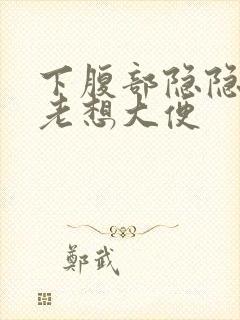 下腹部隐隐
老想大便
鄭武